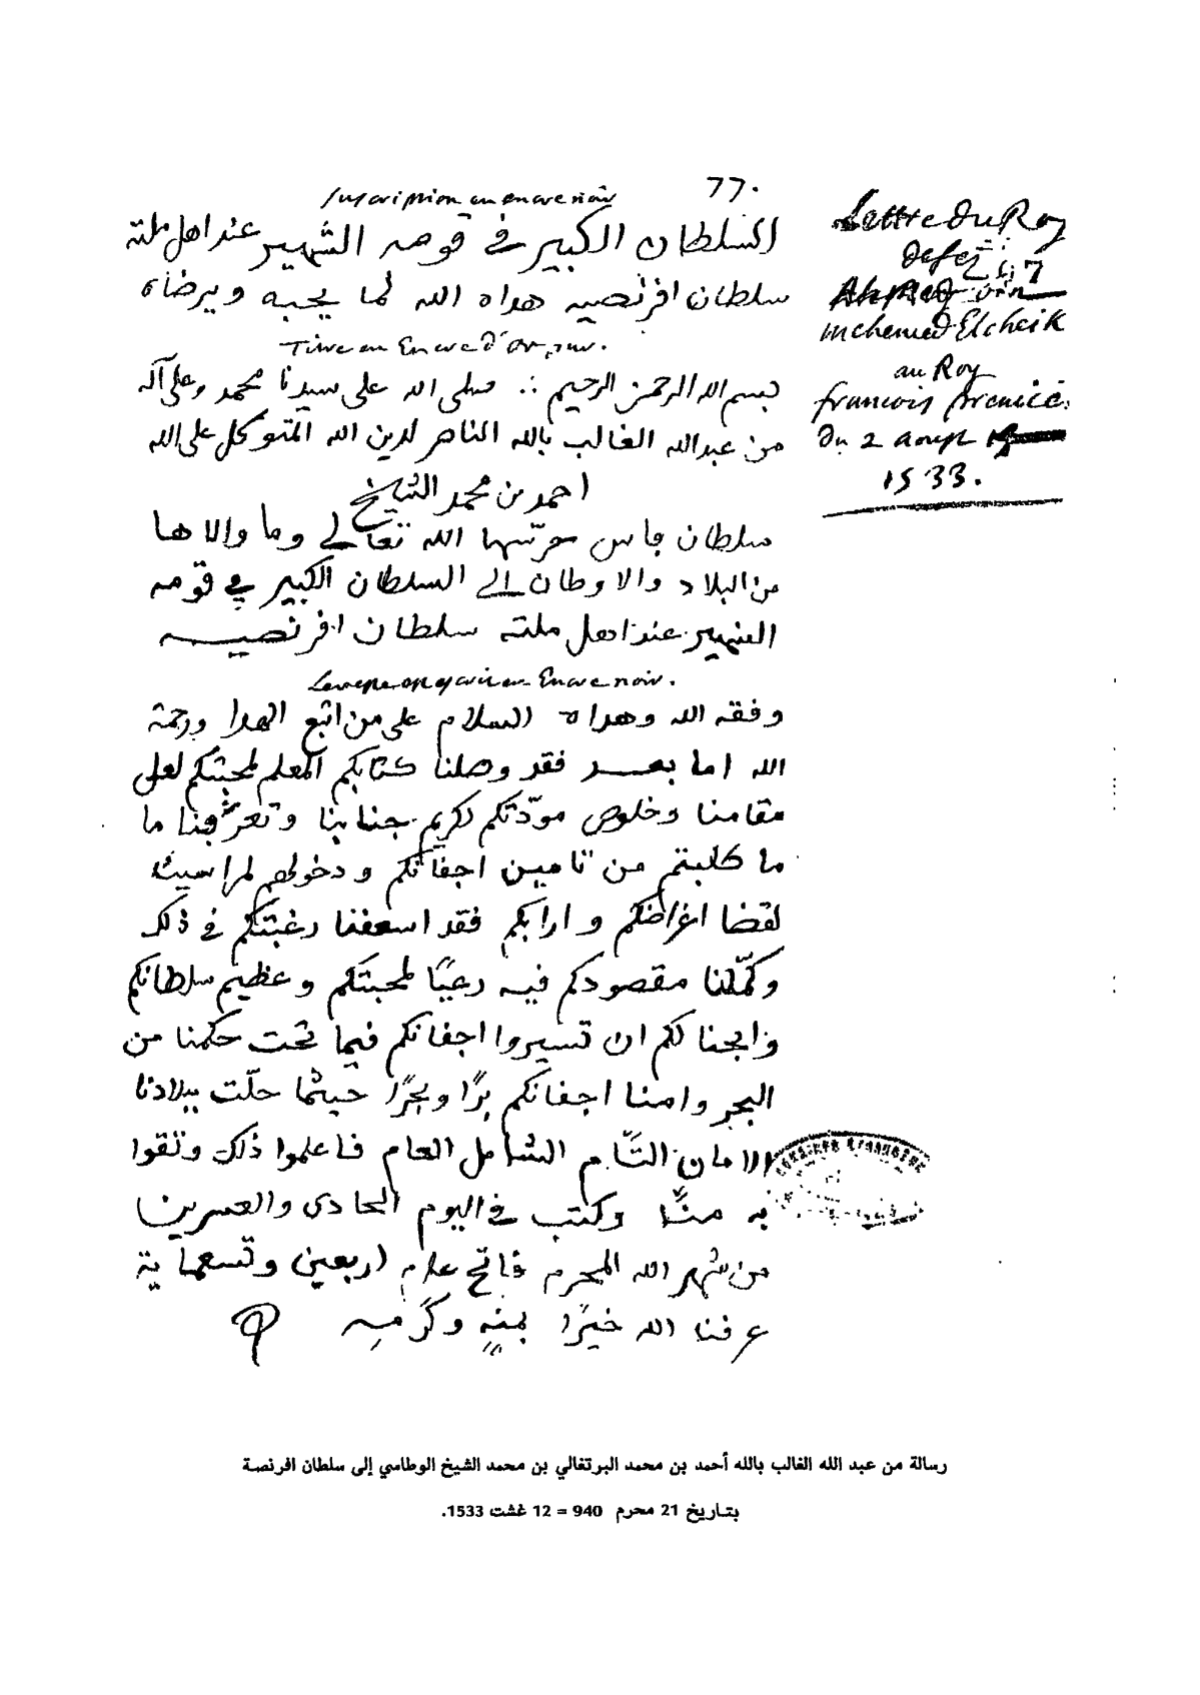 77.
Suscription en encre noir
السلطان الكبير في قومه الشهير عند اهل ملته
سلطان افرنصيه هداه الله لما يحبه ويرضاه
Titre en Encre d'or, pur.
بسم الله الرحمن الرحيم ∴ صلى الله على سيدنا محمد وعلى آله
من عبد الله الغالب بالله الناصر لدين الله المتوكل على الله
احمد بن محمد الشيخ
سلطان ڢاس حرسها الله تعالى وما والاها
من البلاد والاوطان الى السلطان الكبير ڢي قومه
الشهير عند اهل ملته سلطان افرنصيه
en Encre noir.
وفقه الله وهداه السلام على من اتبع الهدا ورحمة
الله اما بعد فقد وصلنا كتابكم المعلم لمحبتكم لعلى
مقامنا وخلوص مودّتكم لكريم جنابنا وتعرڢنا ما
ما طلبتم من تامين اجفانكم ودخولهم لمراسينا
لقضا اغراضكم وارابكم فقد اسعفنا رغبتكم في ذلك
وكمّلنا مقصودكم فيه رعيًا لمحبتكم وعظيم سلطانكم
وابحنا لكم ان تسيروا اجفانكم فيما تحت حكمنا من
البحر وامنا اجفانكم برًا وبحرًا حيثما حلّت ببلادنا
الامان التّام الشامل العام فاعلموا ذلك وثقوا
به منّا وكتب في اليوم الحادى والعشرين
من شهر الله المحرم فاتح عام اربعين وتسعماية
عرفنا الله خيرًا بمنه وكرمه
Lettre Du Roy
de fez
Ahmed ben
mehemed Elcheik
au Roy
francois premier
Du 2 aoust
1533.
رسالة من عبد الله الغالب بالله أحمد بن محمد البرتغالي بن محمد الشيخ الوطاسي إلى سلطان افرنصة
بتاريخ 21 محرم 940 = 12 غشت 1533.